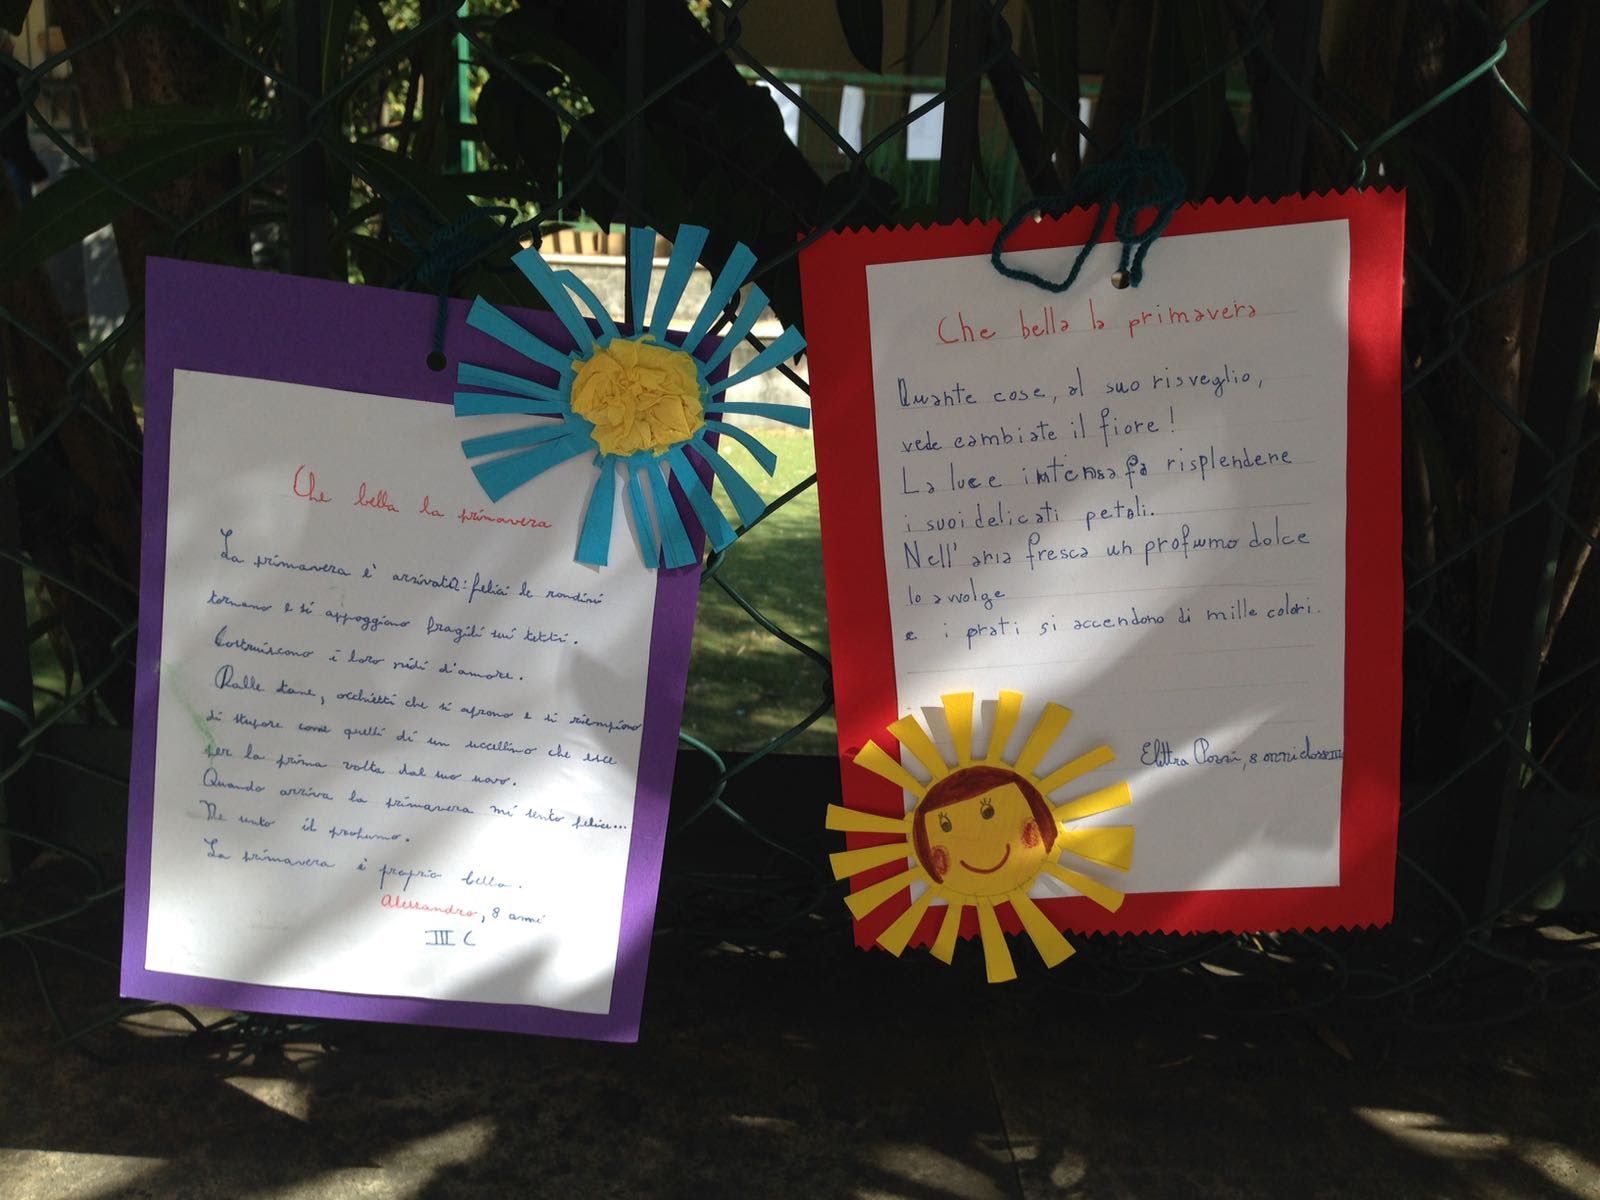 Che bella la primavera
La primavera è arrivata: felici le rondini
tornano e si appoggiano fragili sui tetti.
Costruiscono i loro nidi d'amore.
Dalle tane, occhietti che si aprono e si riempiono
di stupore come quelli di un uccellino che esce
per la prima volta dal suo uovo.
Quando arriva la primavera mi sento felice...
Ne sento il profumo.
La primavera è proprio bella.
Alessandro, 8 anni
III C
Che bella la primavera
Quante cose, al suo risveglio,
vede cambiate il fiore!
La luce intensa fa risplendere
i suoi delicati petali.
Nell'aria fresca un profumo dolce
lo avvolge
e i prati si accendono di mille colori.
Elettra 8 anni classe III